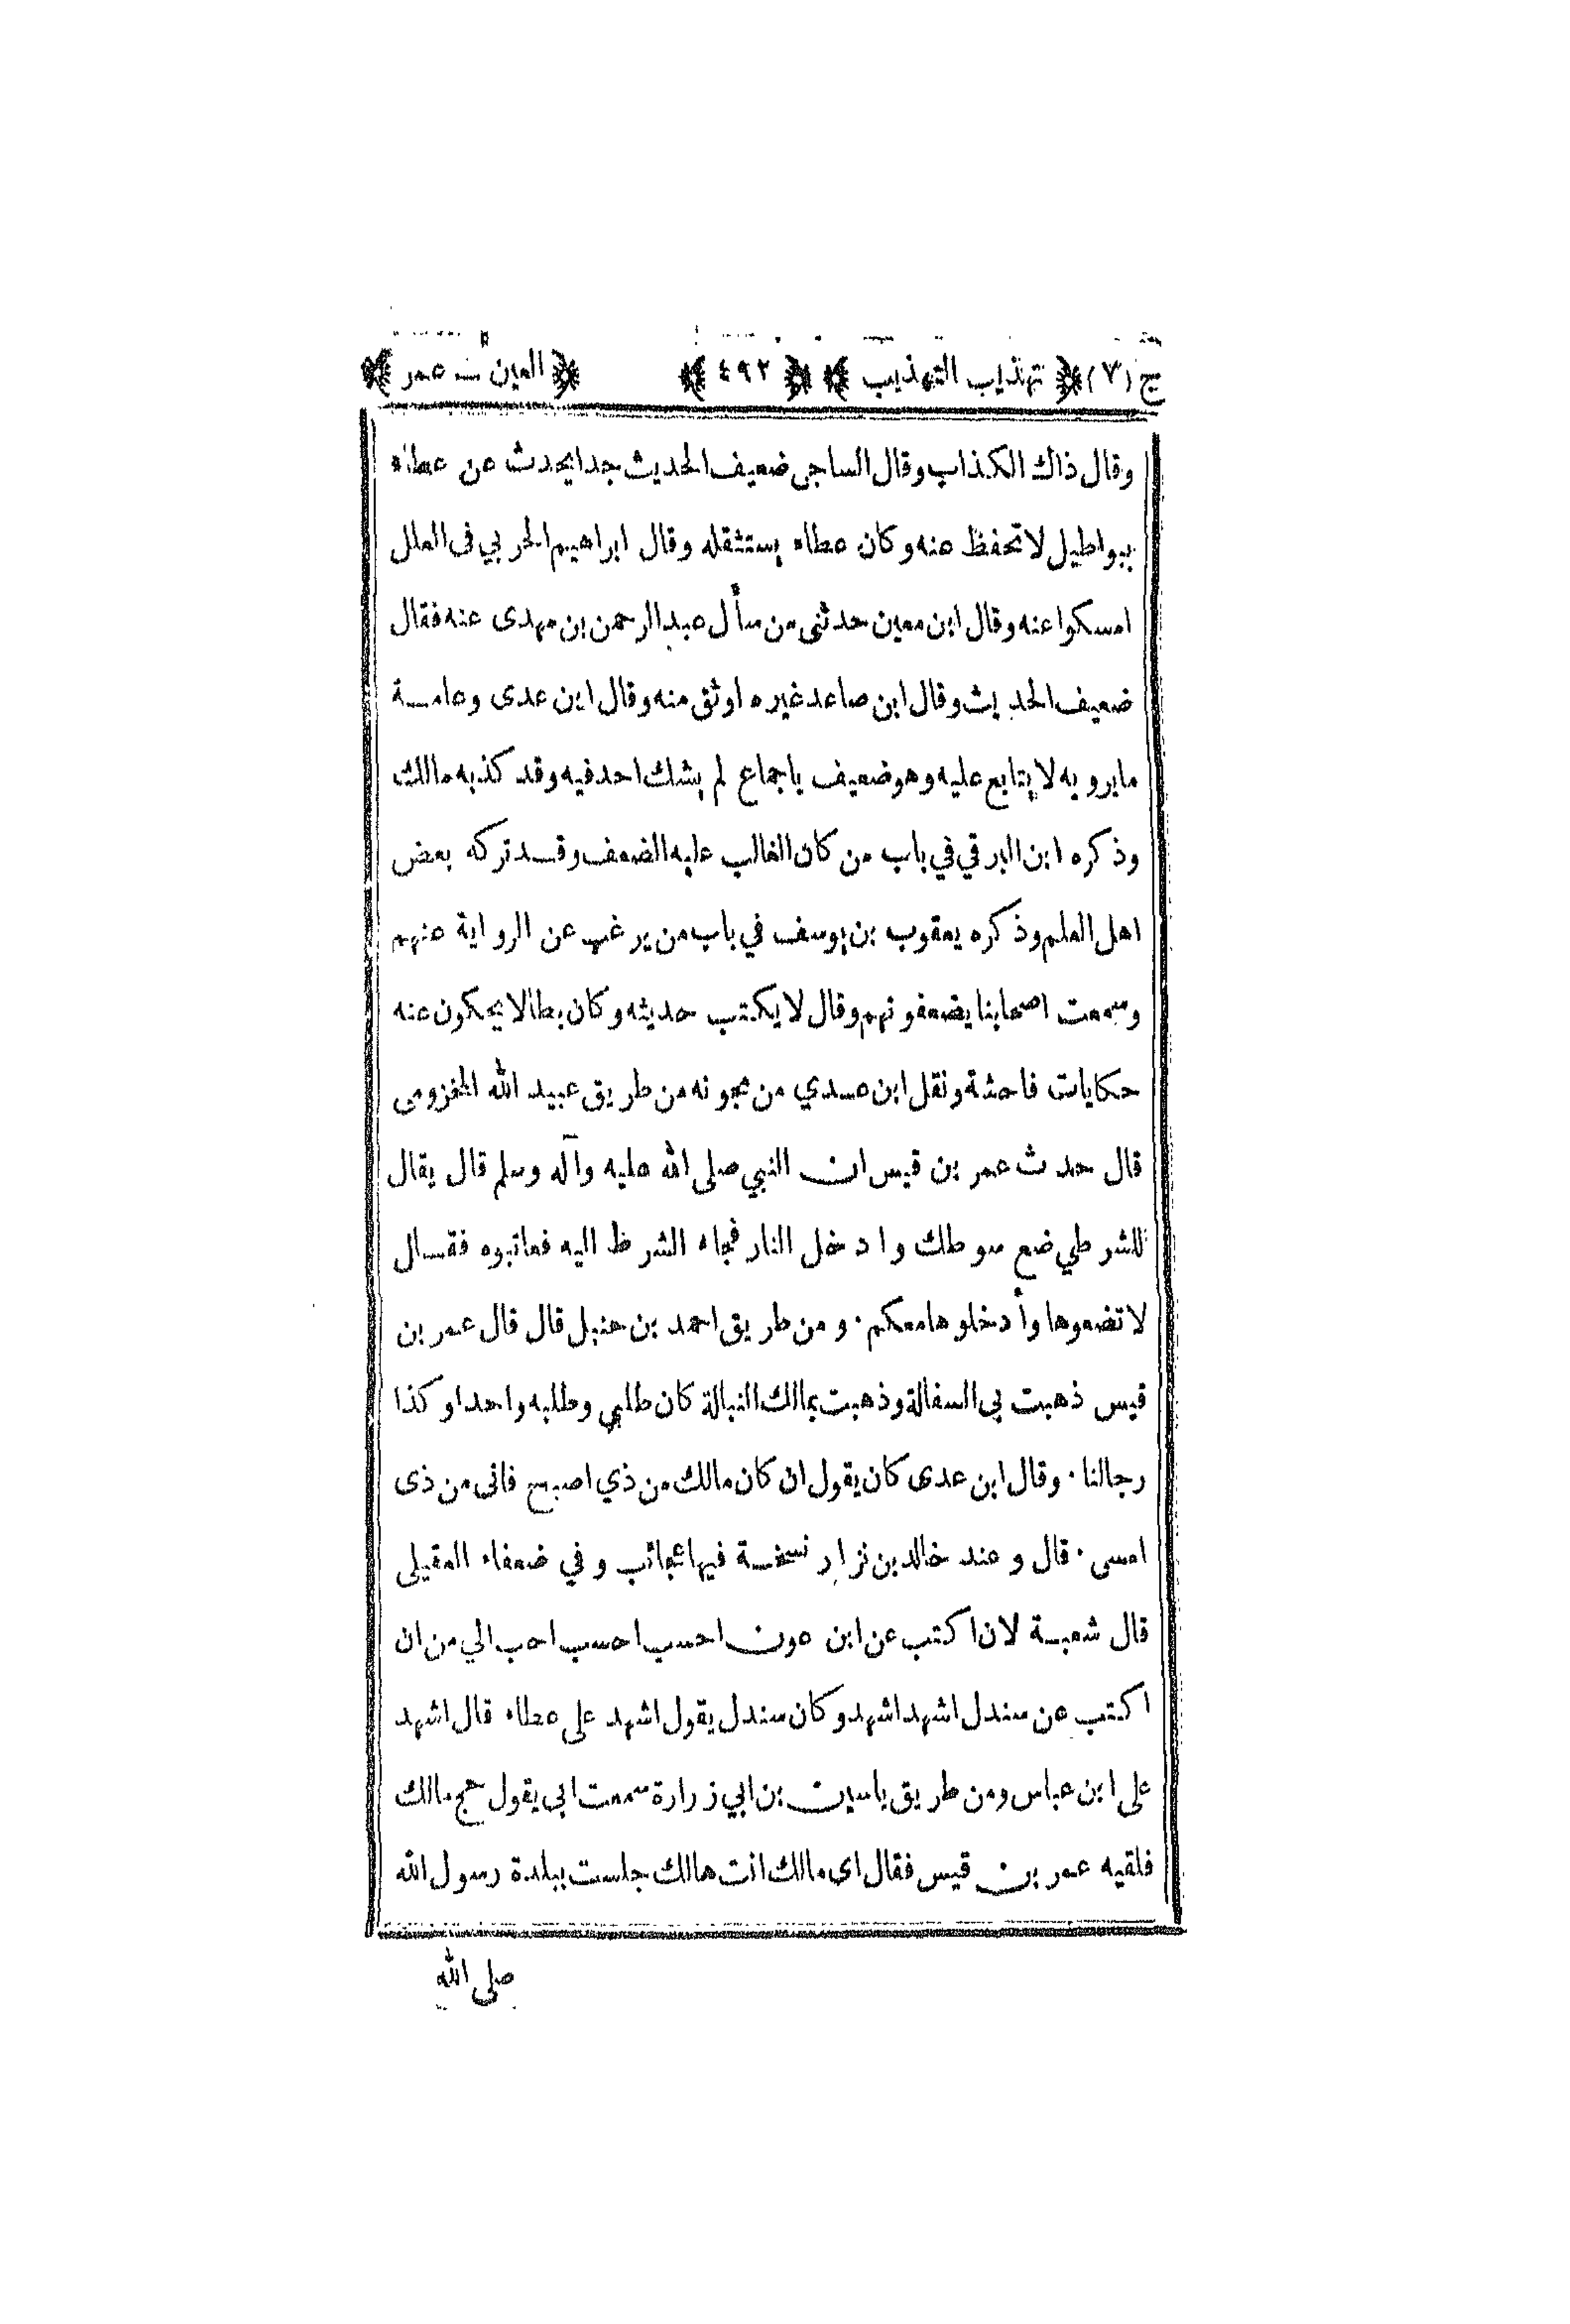 ج (٧) ﴿ تهذيب التهذيب ﴾ ﴿ ٤٩٢ ﴾ ﴿ العين - عمر ﴾
وقال ذاك الكذاب وقال الساجى ضعيف الحديث جدا يحدث عن عطاء
ببواطيل لا تحفظ عنه وكان عطاء يستثقله وقال ابراهيم الحربي فى العلل
امسكوا عنه وقال ابن معين حدثنى من سأل عبد الرحمن بن مهدى عنه فقال
ضعيف الحديث وقال ابن صاعد غيره اوثق منه وقال ابن عدى وعامة
ما يرويه لا يتابع عليه وهو ضعيف باجماع لم يشك احد فيه وقد كذبه مالك
وذكره ابن البرقي في باب من كان الغالب عليه الضعف وقد تركه بعض
اهل العلم وذكره يعقوب بن يوسف في باب من يرغب عن الرواية عنهم
وسمعت اصحابنا يضعفونهم وقال لا يكتب حديثه وكان بطالا يحكون عنه
حكايات فاحشة ونقل ابن عدي من مجونه من طريق عبيد الله المخزومى
قال حدث عمر بن قيس ان النبي صلى الله عليه وآله وسلم قال يقال
للشرطي ضع سوطك وادخل النار فجاء الشرط اليه فعاتبوه فقال
لا تضعوها وأدخلوها معكم · ومن طريق احمد بن حنبل قال قال عمر بن
قيس ذهبت بي السفالة وذهبت بمالك النبالة كان طلبي وطلبه واحدا وكذا
رجالنا · وقال ابن عدى كان يقول ان كان مالك من ذي اصبح فانى من ذى
امسى · قال وعند خالد بن نزار نسخة فيها عجائب وفي ضعفاء العقيلى
قال شعبة لان اكتب عن ابن عون احسب احسب احب الي من ان
اكتب عن سندل اشهد اشهد وكان سندل يقول اشهد على عطاء قال اشهد
على ابن عباس ومن طريق ياسين بن ابي زرارة سمعت ابي يقول حج مالك
فلقيه عمر بن قيس فقال اى مالك انت هالك جلست ببلدة رسول الله
صلى الله